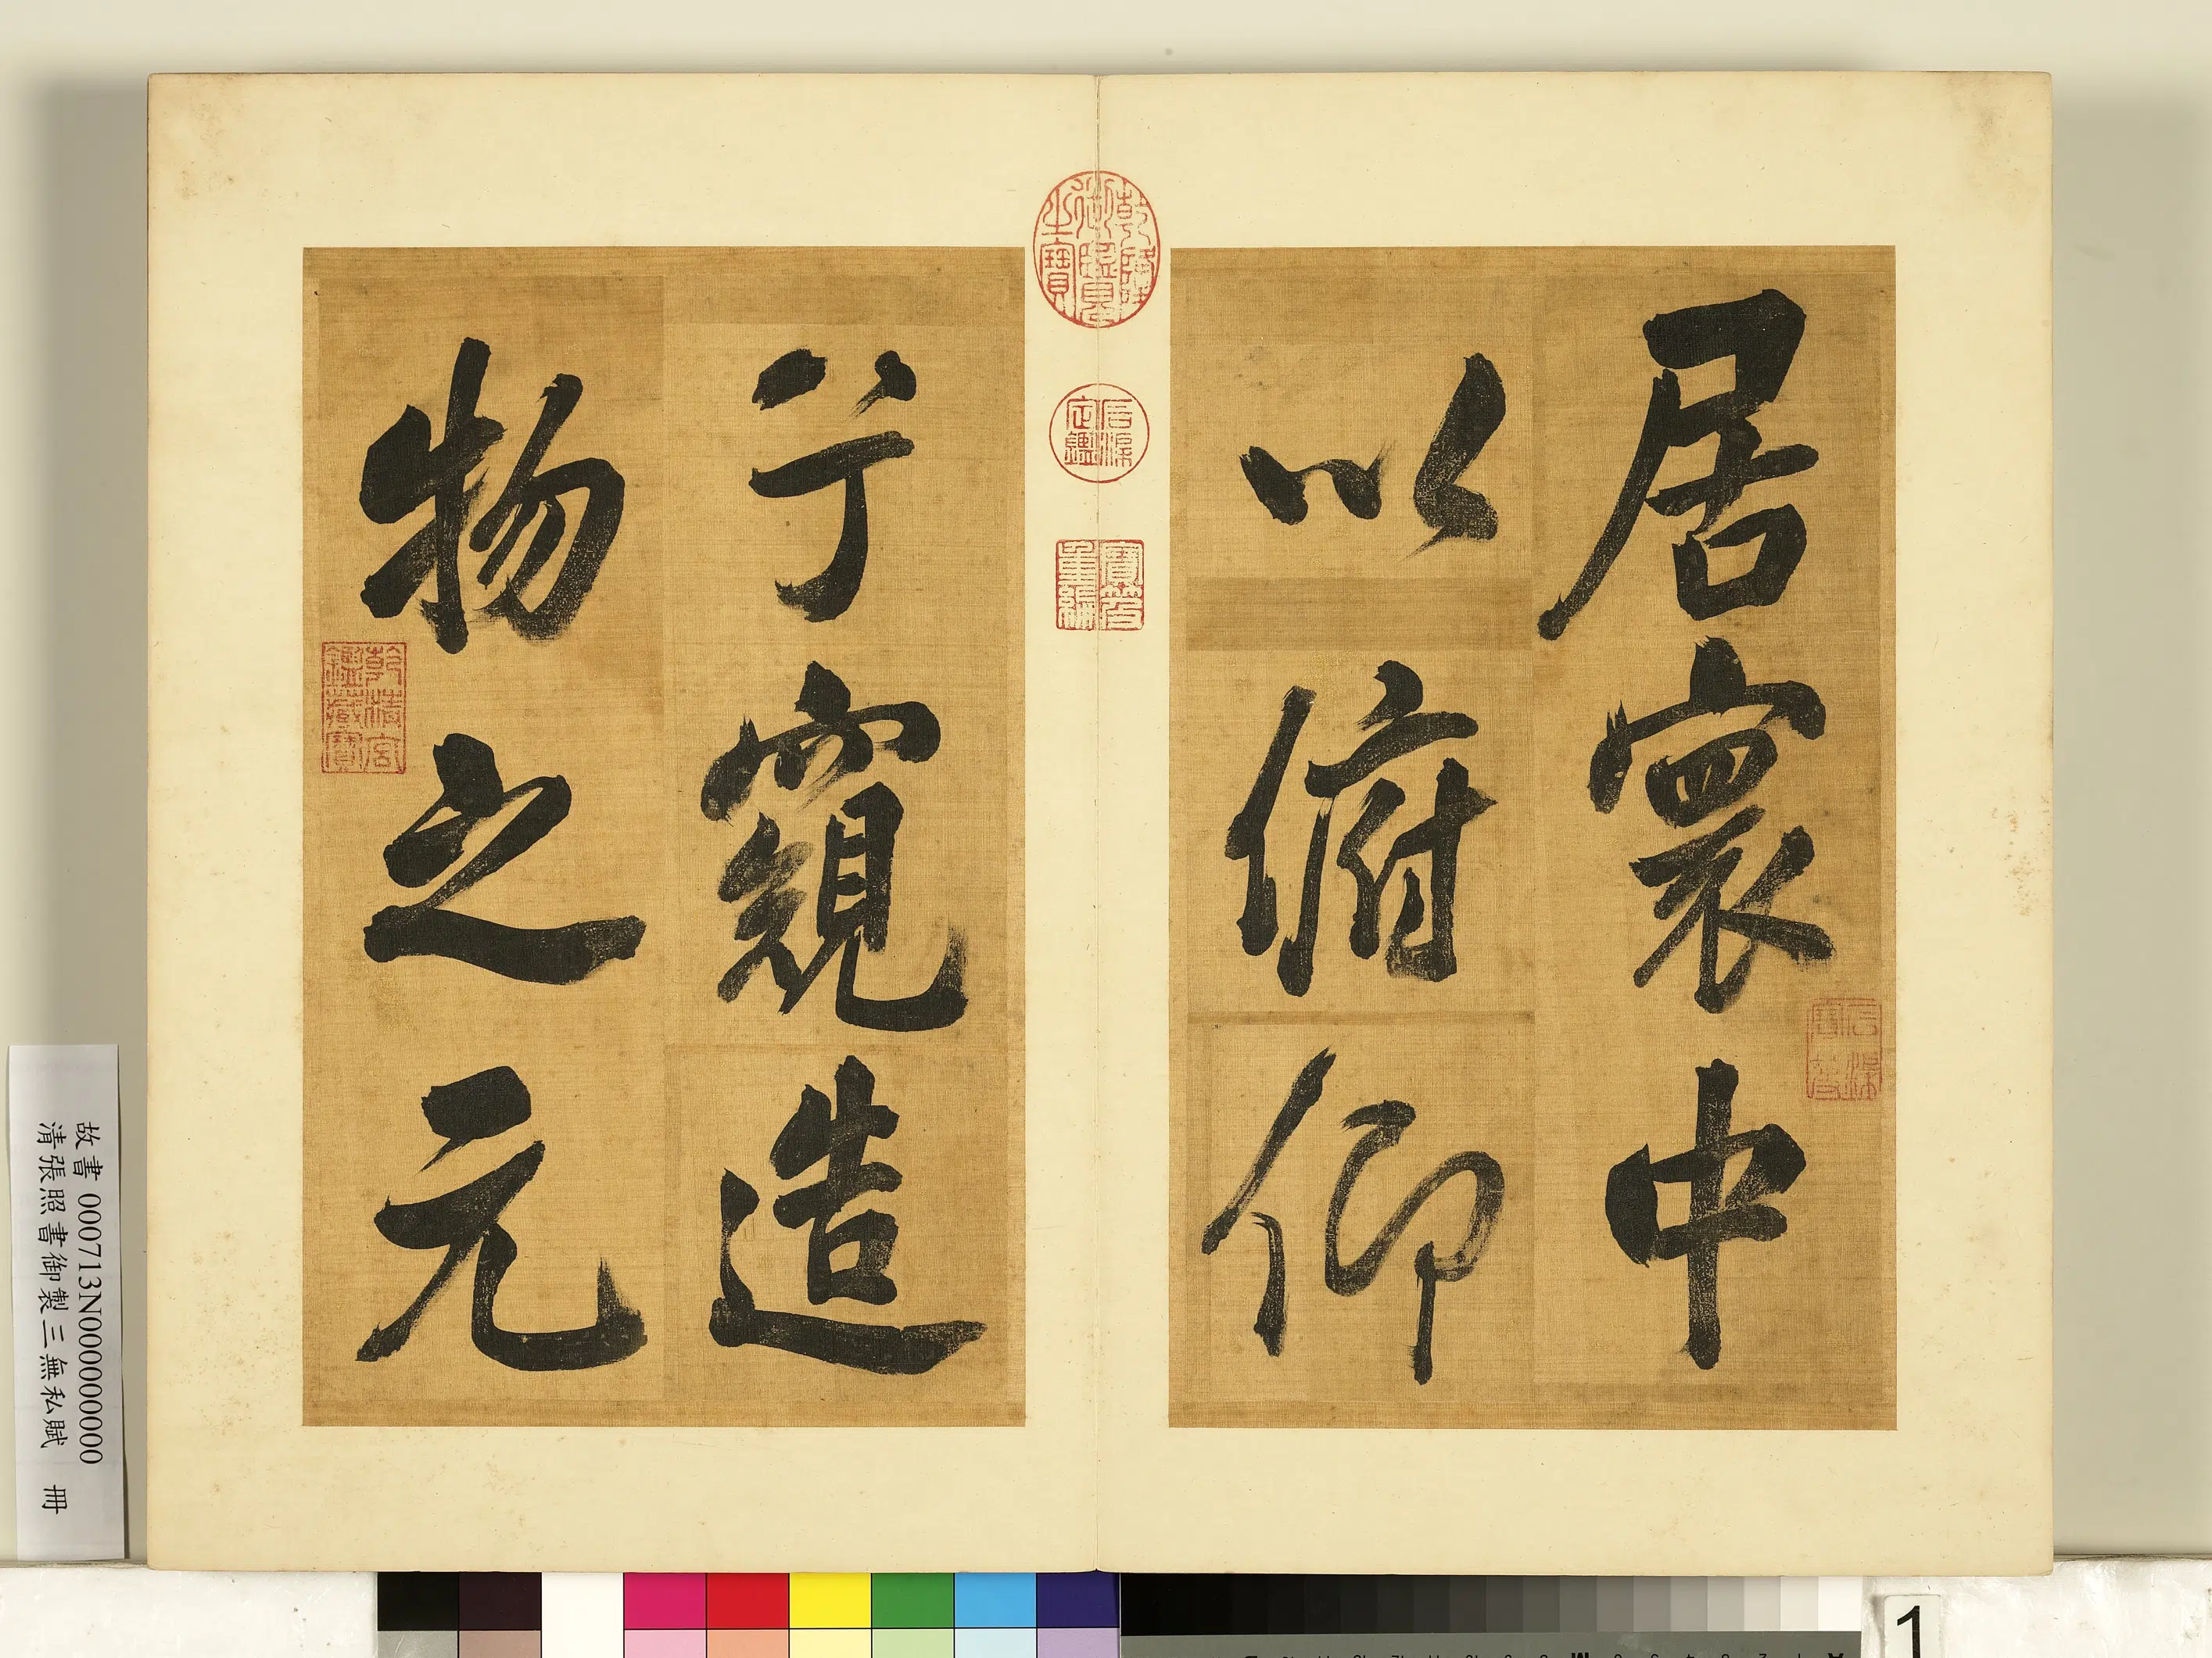 居寰中
以俯仰
石渠寶笈
乾隆御覽之寶
石渠定鑑
寶笈重編
兮窺造
物之元
乾清宮鑑藏寶
故書 000713N000000000
清張照書御製三無私賦 冊
1